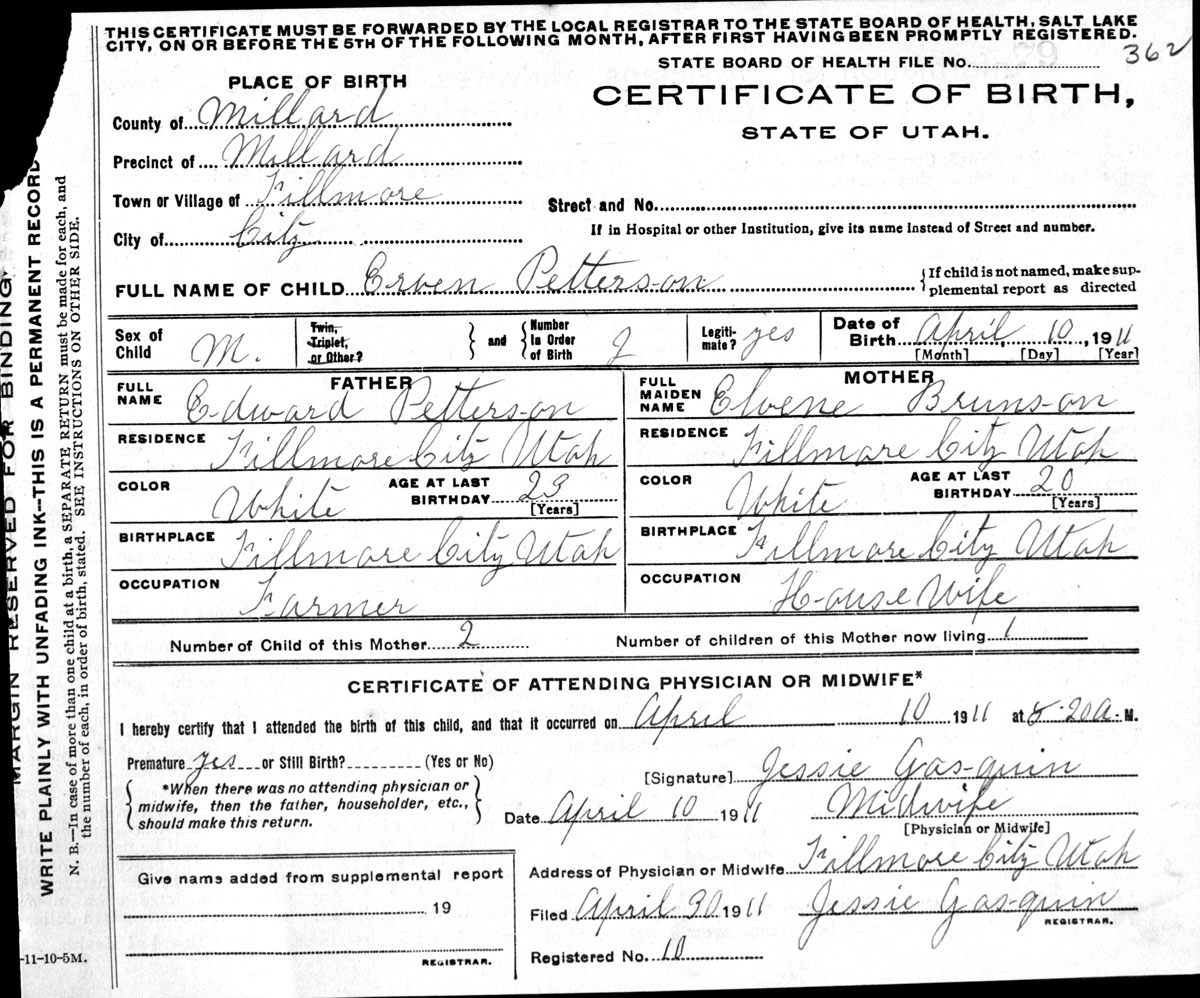 THIS CERTIFICATE MUST BE FORWARDED BY THE LOCAL REGISTRAR TO THE STATE BOARD OF HEALTH, SALT LAKE
CITY, ON OR BEFORE THE 5TH OF THE FOLLOWING MONTH, AFTER FIRST HAVING BEEN PROMPTLY REGISTERED.
STATE BOARD OF HEALTH FILE No. 362
PLACE OF BIRTH
CERTIFICATE OF BIRTH,
STATE OF UTAH.
County of Millard
Precinct of Millard
Town or Village of Fillmore
Street and No.
City of City
If in Hospital or other Institution, give its name instead of Street and number.
FULL NAME OF CHILD Erven Petterson
If child is not named, make sup-
plemental report as directed
Sex of Child M.
Twin, Triplet, or Other?
and
Number in Order of Birth 2
Legiti-mate? yes
Date of Birth April 10, 1911
[Month] [Day] [Year]
FATHER
FULL NAME Edward Petterson
RESIDENCE Fillmore City Utah
COLOR White AGE AT LAST BIRTHDAY 23
[Years]
BIRTHPLACE Fillmore City Utah
OCCUPATION Farmer
MOTHER
FULL MAIDEN NAME Elvene Brunson
RESIDENCE Fillmore City Utah
COLOR White AGE AT LAST BIRTHDAY 20
[Years]
BIRTHPLACE Fillmore City Utah
OCCUPATION House Wife
Number of Child of this Mother 2 Number of children of this Mother now living 1
CERTIFICATE OF ATTENDING PHYSICIAN OR MIDWIFE*
I hereby certify that I attended the birth of this child, and that it occurred on April 10 1911 at 20 a. M.
Premature yes or Still Birth? (Yes or No)
*When there was no attending physician or
midwife, then the father, householder, etc.,
should make this return.
[Signature] Jessie Gas-quin
Date April 10 1911 Midwife
[Physician or Midwife]
Give name added from supplemental report
19
REGISTRAR.
Address of Physician or Midwife Fillmore City Utah
Filed April 30 1911 Jessie Gas-quin
REGISTRAR.
Registered No. 10
-11-10-5M.
MARGIN RESERVED FOR BINDING
WRITE PLAINLY WITH UNFADING INK--THIS IS A PERMANENT RECORD
N. B.—In case of more than one child at a birth, a SEPARATE RETURN must be made for each, and
the number of each, in order of birth, stated. SEE INSTRUCTIONS ON OTHER SIDE.